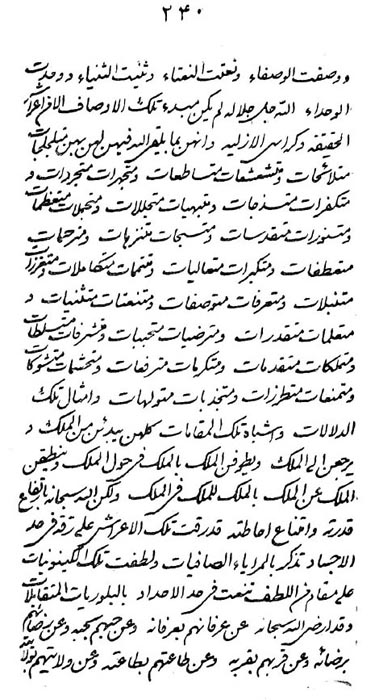 ٢٤٠
ووصفت الوصفاء ونعتت النعتاء وثنيت الثنياء ووحدت
الوحداء الله جل جلاله لم يكن مبدء تلك الاوصاف الا فى اعراش
الحقيقه وكراسى الازليه وانهن بما يلقى الله فيهن لهن بهن متلجلجات
متلائحات ومتشعشعات متساطعات ومتحررات متجردات و
متكفرات متسذجات ومتبهيات متجللات ومتجملات متعظمات
ومتنورات متقدسات ومتسبحات متنزهات ومترحمات
متعطفات ومتكبرات متعاليات ومتممات متكاملات ومتعززات
متنبلات ومتعرفات متوصفات ومتنعتات متثنيات و
متعلمات متقدرات ومترضيات متحببات ومتشرفات متسلطات
ومتملكات متقدمات ومتكرمات مترفعات ومتحشمات متشوكات
ومتمنعات متطرزات ومتجذبات متولهات وامثال تلك
الدلالات واشباه تلك المقامات كلهن يبدئن من الملك و
يرجعن الى الملك ويطوفن الملك بالملك فى حول الملك وينطقن
الملك عن الملك بالملك للملك فى الملك ولكن الله سبحانه بارتفاع
قدرته وامتناع احاطته قد رقت تلك الاعراش على رقة فى حد
الاجساد تذكر بالمراياء الصافيات ولطفت تلك الكينونيات
على مقام من اللطف تنعت فى حد الاحداد بالبلوريات المتقابلات
وقد ارضى الله سبحانه عن عرفانهم بعرفانه وعن حبهم بحبه وعن رضائهم
برضائه وعن قربهم بقربه وعن طاعتهم بطاعته وعن ولايتهم بولايته